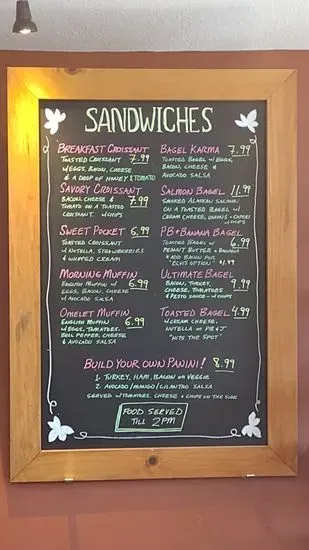 SANDWICHES
BREAKFAST CROISSANT 7.99
TOASTED CROISSANT
W/EGGS, BACON, CHEESE
& A DROP OF HONEY & TOMATO
SAVORY CROISSANT
BACON, CHEESE & 7.99
TOMATO ON A TOASTED
CROISSANT. W/CHIPS
SWEET POCKET 6.99
TOASTED CROISSANT
W/NUTELLA, STRAWBERRIES
& WHIPPED CREAM
MORNING MUFFIN
ENGLISH MUFFIN W/ 6.99
EGGS, BACON, CHEESE
& AVOCADO SALSA
OMELET MUFFIN
ENGLISH MUFFIN 6.99
W/EGGS, TOMATOES,
BELL PEPPER, CHEESE
& AVOCADO SALSA
BAGEL KARMA 7.99
TOASTED BAGEL W/EGGS,
BACON, CHEESE &
AVOCADO SALSA
SALMON BAGEL 11.99
SMOKED ALASKAN SALMON
ON A TOASTED BAGEL W/
CREAM CHEESE, ONIONS + CAPERS
W/CHIPS
PB & BANANA BAGEL
TOASTED BAGEL W/ 6.99
PEANUT BUTTER & BANANA
*ADD BACON FOR
"ELVIS OPTION" $1.49
ULTIMATE BAGEL
BACON, TURKEY, 9.99
CHEESE, TOMATOES
& PESTO SAUCE - W/CHIPS
TOASTED BAGEL 4.99
W/CREAM CHEESE,
NUTELLA OR PB & J
"HITS THE SPOT"
BUILD YOUR OWN PANINI! 8.99
1. TURKEY, HAM, BACON OR VEGGIE
2. AVOCADO/MANGO/CILANTRO SALSA
SERVED W/TOMATOES, CHEESE & CHIPS ON THE SIDE
FOOD SERVED
TILL 2PM